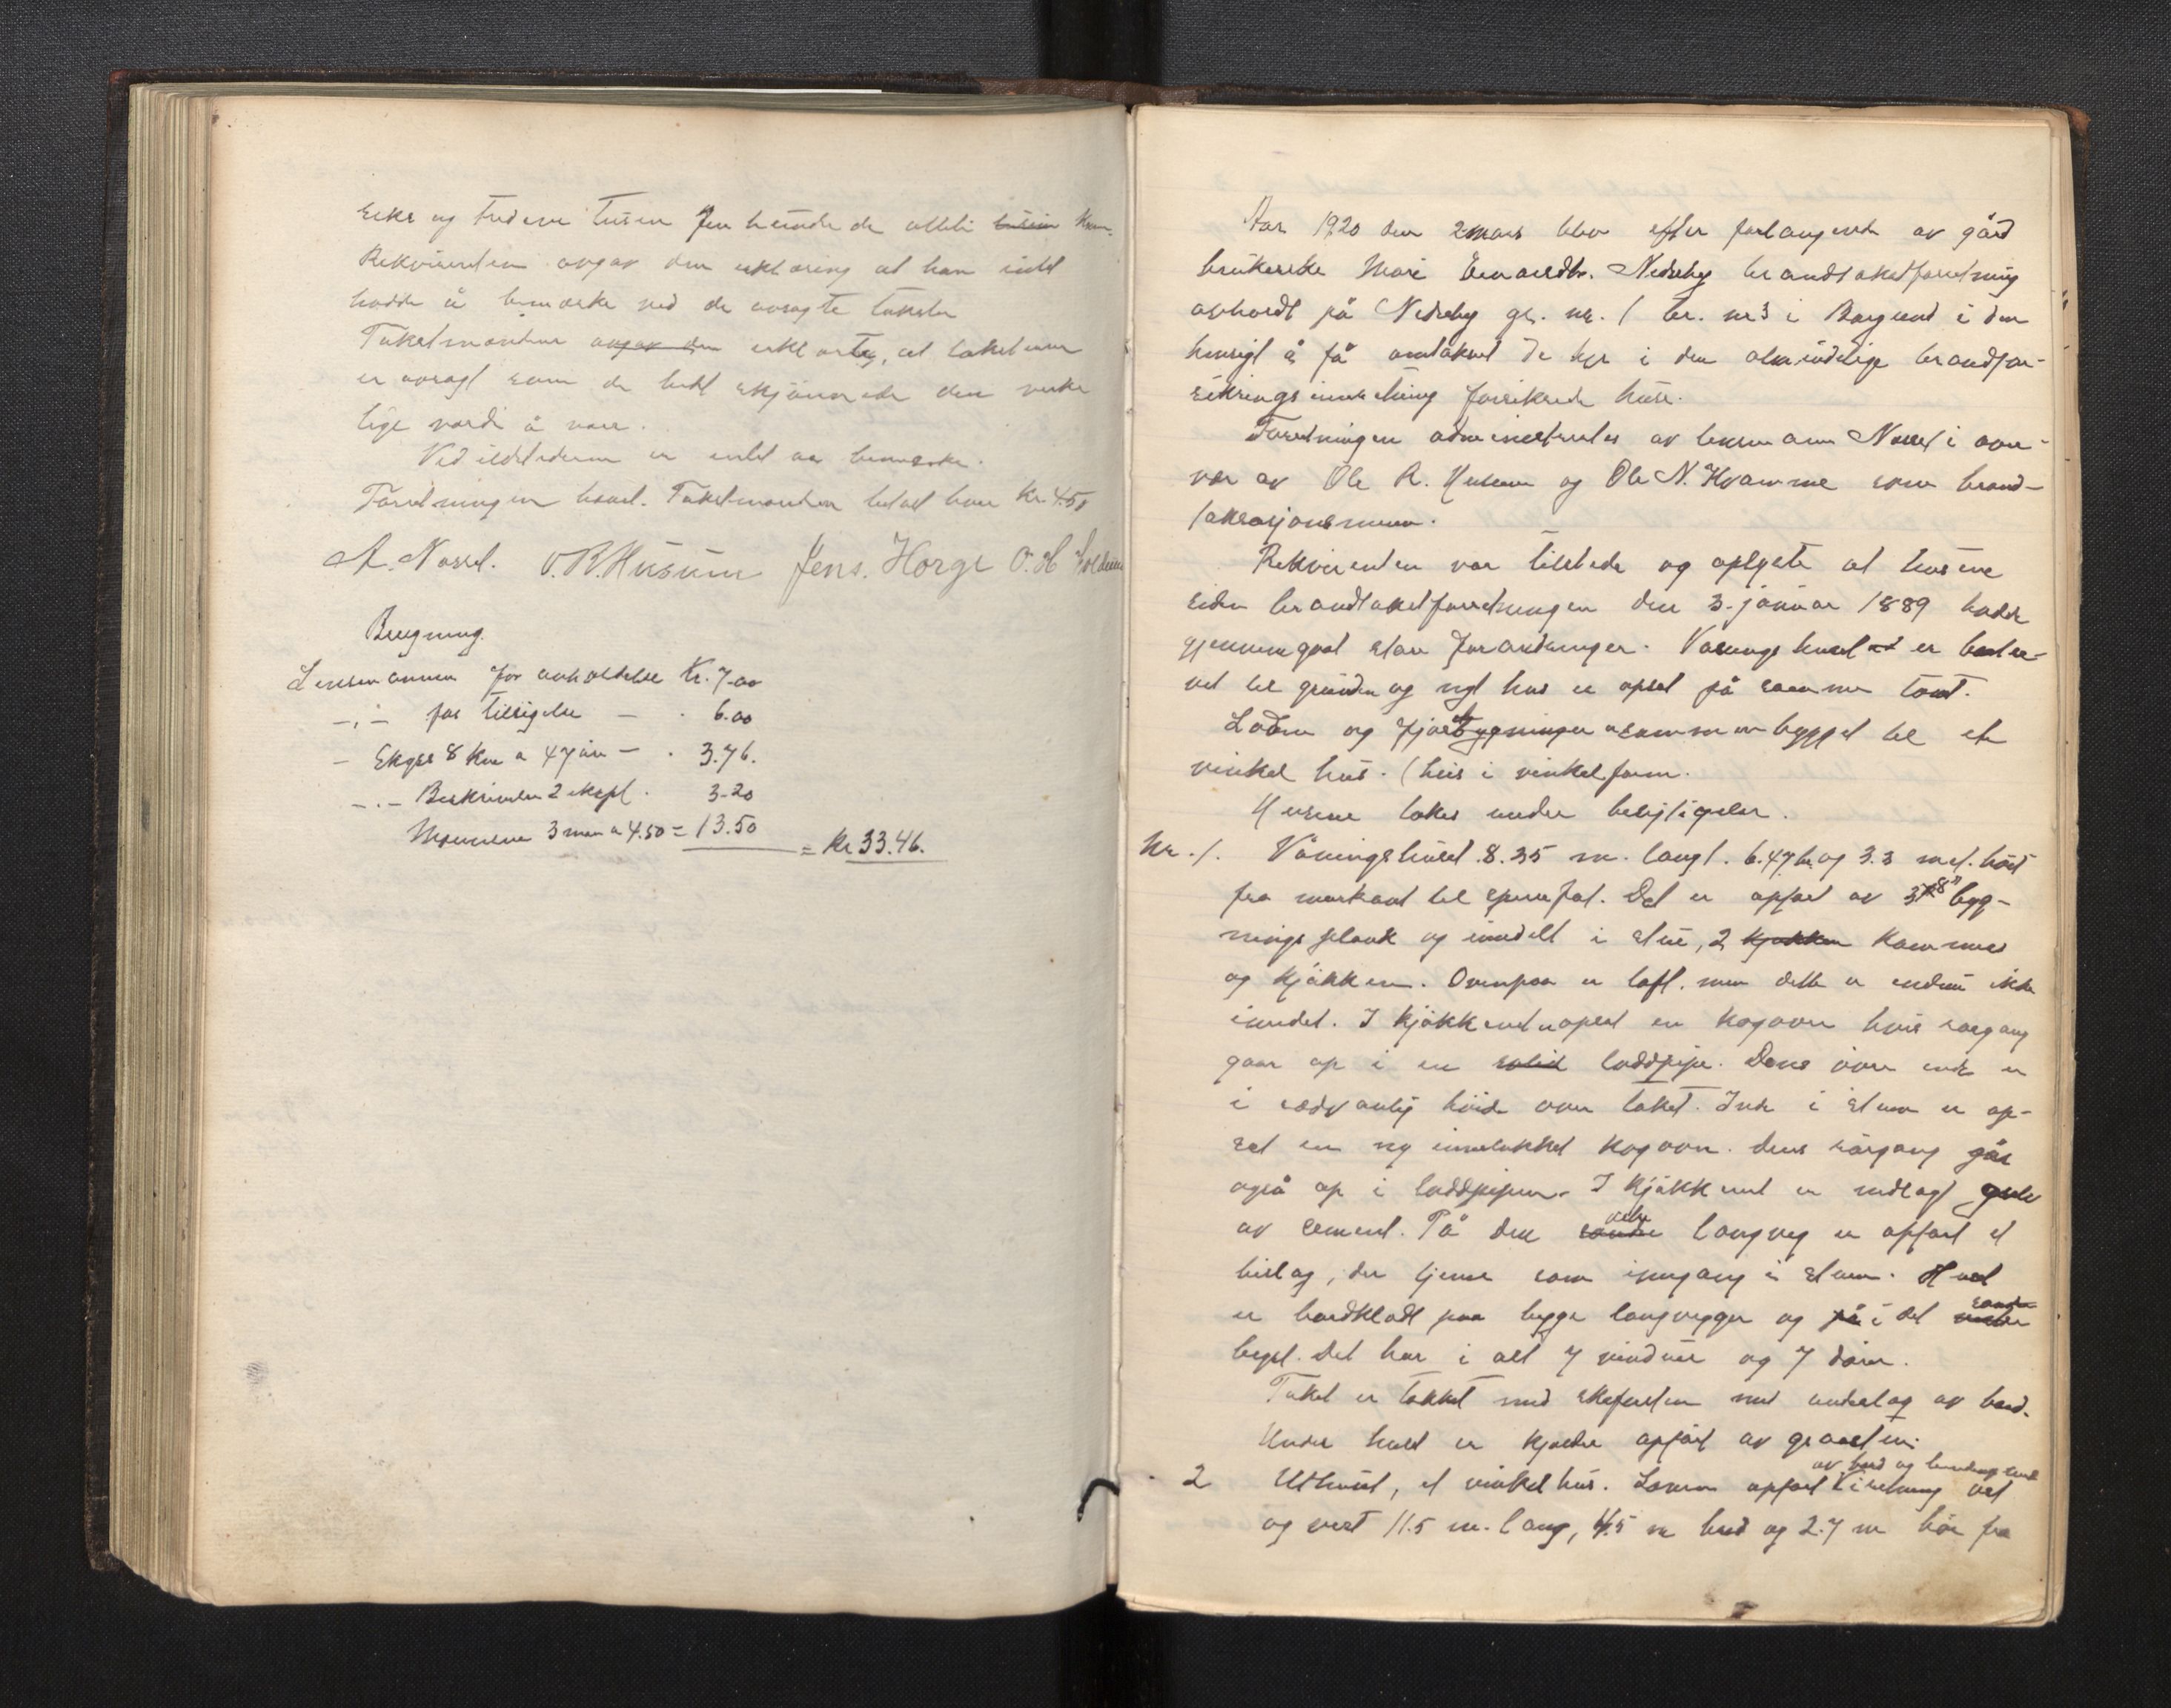 seks og tredeve tusen fem hundrede otteti tusin Kron.
Rekvirenten avgav den erklæring at han intet
hadde å bemærke ved de avsagte takster
Takstmændene avgav den erklærteg, at taksterne
er avsagt som de bedst skjønnede den virke
lige værdi å være.
Ved ildstederne er intet aa bemærke.
Forretningen hævet. Takstmændene betalt hver Kr. 4.50
A. Nassel. O.R. Husum Jens. Horge O. H Voldum
Beregning.
Lensmannen for avholdelse Kr. 7.00
-,- for tilsigelse - . 6.00
- Skyss 8 km a 47 øre - . 3.76.
-.- Beskrivelse 2 ekspl. 3.20
Mændene 3 man a 4.50 = 13.50 = Kr 33.46.
Aar 1920 den 2 mars blev efter forlangende av gård
brukerske Mari Nedreby brandtakstforretning
avholdt på Nedreby gr. nr. 1 br. nr 3 i Borgund i den
hensigt å få omtaksert de her i den almindelige brandfor-
sikringsinnretning forsikrede huse.
Forretningen administrertes av lensmann Nassel i over-
vær av Ole R. Husum og Ole N. Kvamme som brand-
taksasjonsmenn.
Rekvirenten var tilstede og oplyste at husene
siden brandtakstforretningen den 3. januar 1889 hadde
gjennemgåt store forandringer. Vaaningshuset er
vet til grunden og nyt hus er opsat på samme tomt.
Loden og fjøsbygningen er sammenbygget til et
vinkel hus. (hus i vinkelform.
Husene tokes under besigtigelse.
Nr. 1. Våningshuset. 8.35 m. langt. 6.47 br. og 3.3 met. høit
fra murkant til sperrefot. Det er opført av 3" 8" byg-
nings plank og inndelt i stue, 2 kjøkken kammers
og kjøkken. Ovenpaa er loft. men dette er endnu ikke
inndelt. I kjøkkenet er opsat en kogovn hvis rørgang
gaar op i en solid loddpipe. Dens øvre ende er
i sedvanlig høide over taket. Inde i stuen er op-
sat en ny innelukket kogovn. dens rørgang går
også op i loddpipen. I kjøkkenet er nedlagt gulv
av cement. På den søndre østre langveg er opført et
bislag, der tjener som inngang i stuen. Huset
er bordklædt paa begge langvegger og på i det nordre søndre
bygst. Det har i alt 7 vinduer og 7 dører.
Taket er tækket med skifersten med underlag av bord.
Under huset er kjelder opført av graasten.
2 Uthuset, et vinkelhus. Loven opført av bord og bindingsverk i retning øst
og vest 11.5 m. lang, 4.5 m bred og 2.7 m høi fra